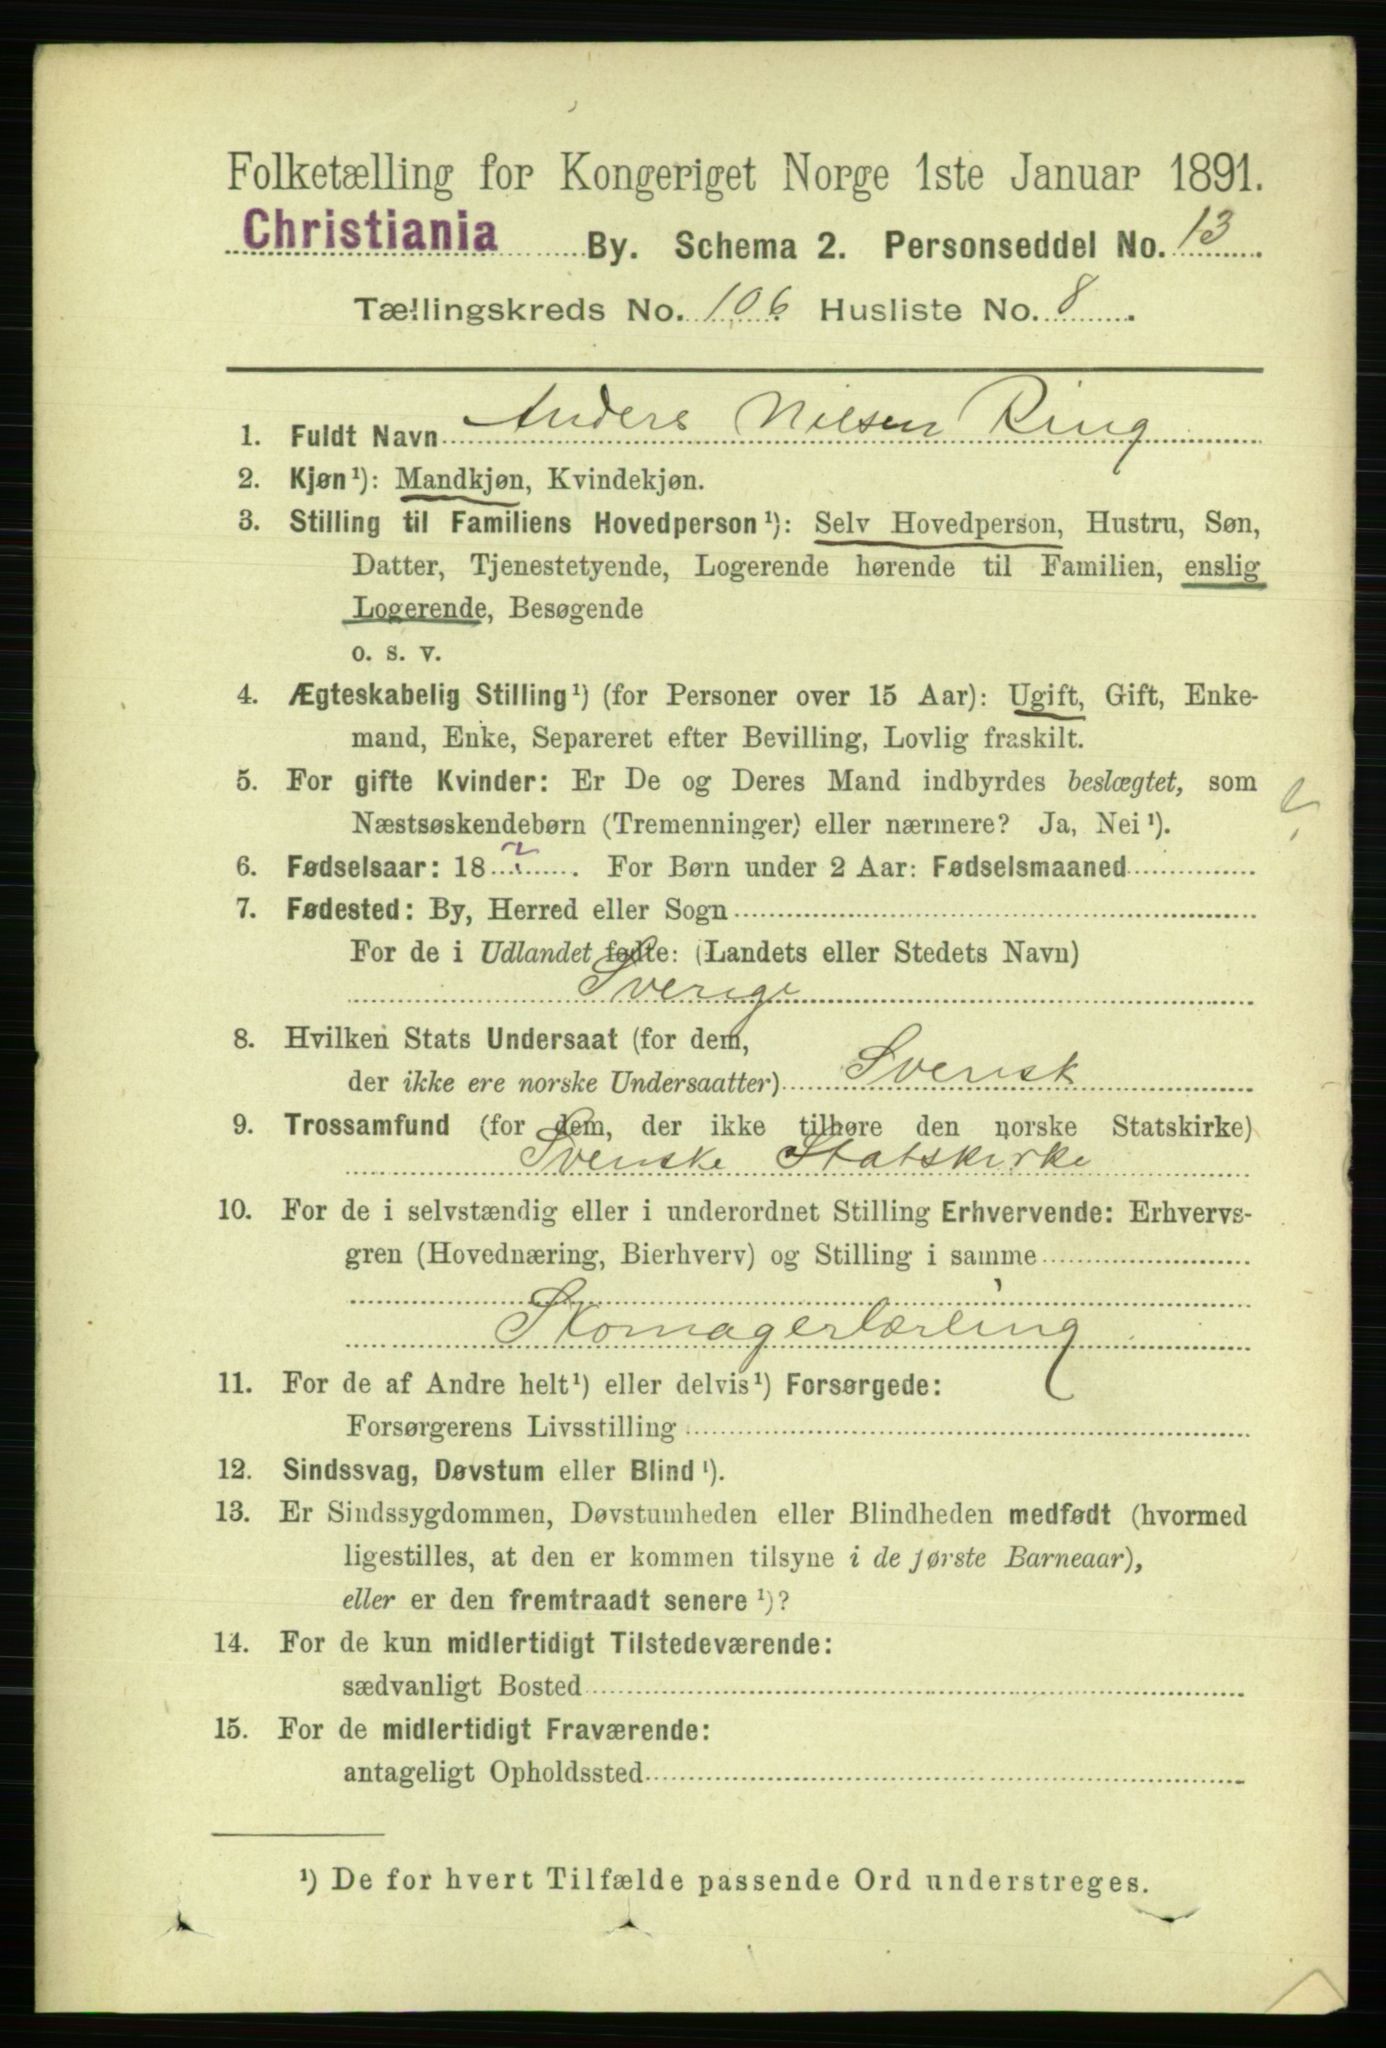 Folketælling for Kongeriget Norge 1ste Januar 1891.
Christiania By. Schema 2. Personseddel No. 13
Tællingskreds No. 106 Husliste No. 8.
1. Fuldt Navn Anders Nilsen Ring
2. Kjøn¹): Mandkjøn, Kvindekjøn.
3. Stilling til Familiens Hovedperson¹): Selv Hovedperson, Hustru, Søn,
Datter, Tjenestetyende, Logerende hørende til Familien, enslig
Logerende, Besøgende
o. s. v.
4. Ægteskabelig Stilling¹) (for Personer over 15 Aar): Ugift, Gift, Enke-
mand, Enke, Separeret efter Bevilling, Lovlig fraskilt.
5. For gifte Kvinder: Er De og Deres Mand indbyrdes beslægtet, som
Næstsøskendebørn (Tremenninger) eller nærmere? Ja, Nei¹).
6. Fødselsaar: 18 . For Børn under 2 Aar: Fødselsmaaned
7. Fødested: By, Herred eller Sogn
For de i Udlandet fødte: (Landets eller Stedets Navn)
Sverige
8. Hvilken Stats Undersaat (for dem,
der ikke ere norske Undersaatter) Svensk
9. Trossamfund (for dem, der ikke tilhøre den norske Statskirke)
Svenske Statskirke
10. For de i selvstændig eller i underordnet Stilling Erhvervende: Erhvervs-
gren (Hovednæring, Bierhverv) og Stilling i samme
Skomagerlærling
11. For de af Andre helt¹) eller delvis¹) Forsørgede:
Forsørgerens Livsstilling
12. Sindssvag, Døvstum eller Blind¹).
13. Er Sindssygdommen, Døvstumheden eller Blindheden medfødt (hvormed
ligestilles, at den er kommen tilsyne i de første Barneaar),
eller er den fremtraadt senere¹)?
14. For de kun midlertidigt Tilstedeværende:
sædvanligt Bosted
15. For de midlertidigt Fraværende:
antageligt Opholdssted
¹) De for hvert Tilfælde passende Ord understreges.